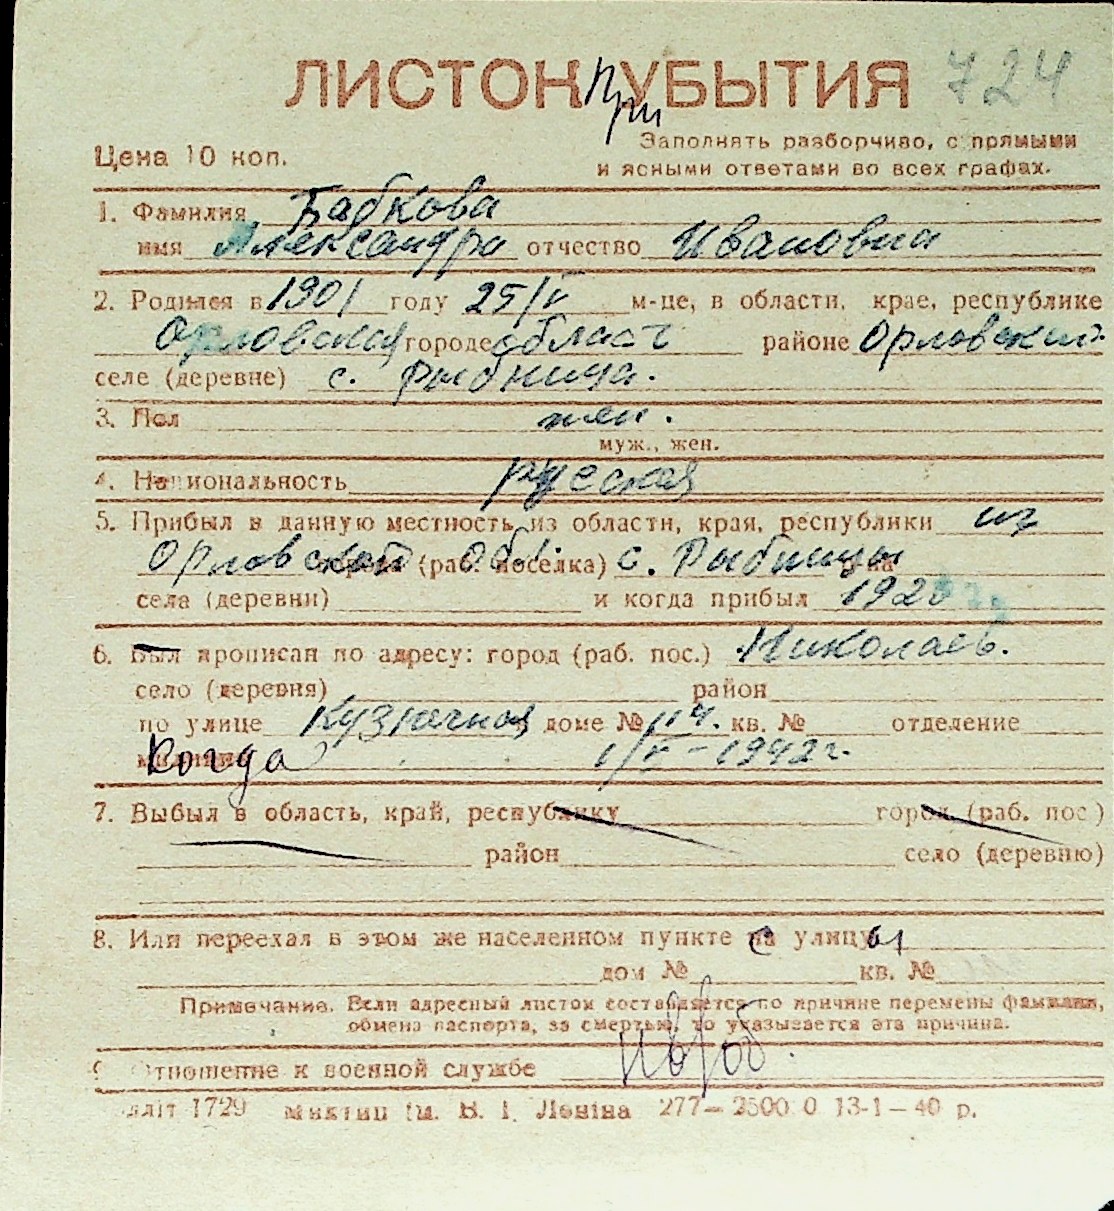 ЛИСТОК При УБЫТИЯ 724
Цена 10 коп.
Заполнять разборчиво, с прямыми
и ясными ответами во всех графах.
1. Фамилия Бабкова
имя Александра отчество Ивановна
2. Родился в 1901 году 25/V м-це, в области, крае, республике
Орловская городе област районе Орловский
селе (деревне) с. Рыбница.
3. Пол жен.
муж., жен.
4. Национальность русская
5. Прибыл в данную местность из области, края, республики из
Орловской обл. (раб. поселка) с. Рыбницы
села (деревни) и когда прибыл 192
6. Был прописан по адресу: город (раб. пос.) Николаев.
село (деревня) район
по улице Кузнечная доме № 114. кв. № отделение
милиции Когда 1/V - 1942 г.
7. Выбыл в область, край, республику город (раб. пос.)
район село (деревню)
8. Или переехал в этом же населенном пункте на улицу
дом № кв. №
Примечание. Если адресный листок составляется по причине перемены фамилии,
обмена паспорта, за смертью, то указывается эта причина.
9 Отношение к военной службе
1729 В. І. Леніна 277—2500 0 13-1—40 р.